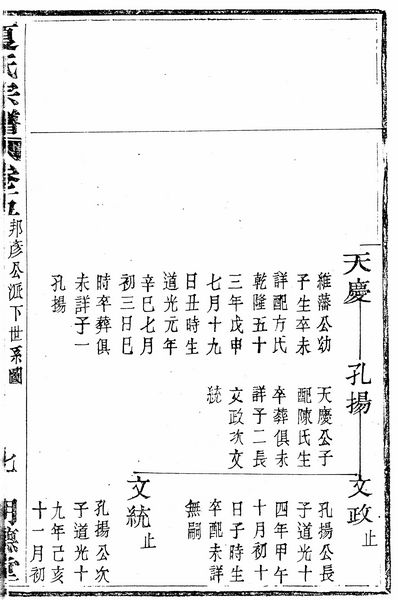 天慶
維藩公幼
子生卒未
詳配方氏
乾隆五十
三年戊申
七月十九
日丑時生
道光元年
辛巳七月
初三日巳
時卒葬俱
未詳子一
孔揚
孔揚
天慶公子
配陳氏生
卒葬俱未
詳子二長
文政次文
統
文政 止
孔揚公長
子道光十
四年甲午
十月初十
日子時生
卒配未詳
無嗣
文統 止
孔揚公次
子道光十
九年己亥
十一月初
夏氏宗譜
邦彥公派下世系圖
七
明德堂